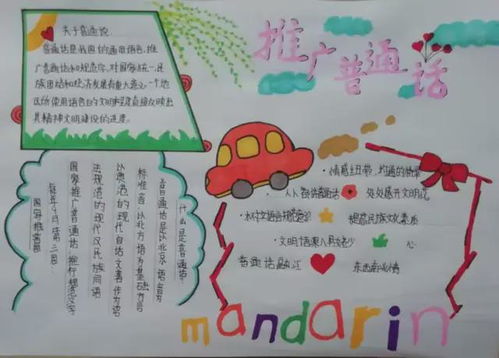 推广普通话
普通话是我国的通用语言,推
广普通话和规范字,对国家统一,民
族团结和经济发展有重大意义,一个地
区所使用语言的文明程度直接反映出
其精神文明建设的进度。
什么是普通话?
普通话是以北京语音为
标准音,以北方话为基础方言
以典范的现代白话文著作为语
法规范的现代汉民族
国家推广普通话 推行规范汉字
每年9月第三周
国家推普周
·情感 纽带,沟通的桥梁
·人人 普通话 处处盛开文明花
语言规范 提高民族文化素质
·文明 深入 心
普通话融汇 东西南北情
mandarin